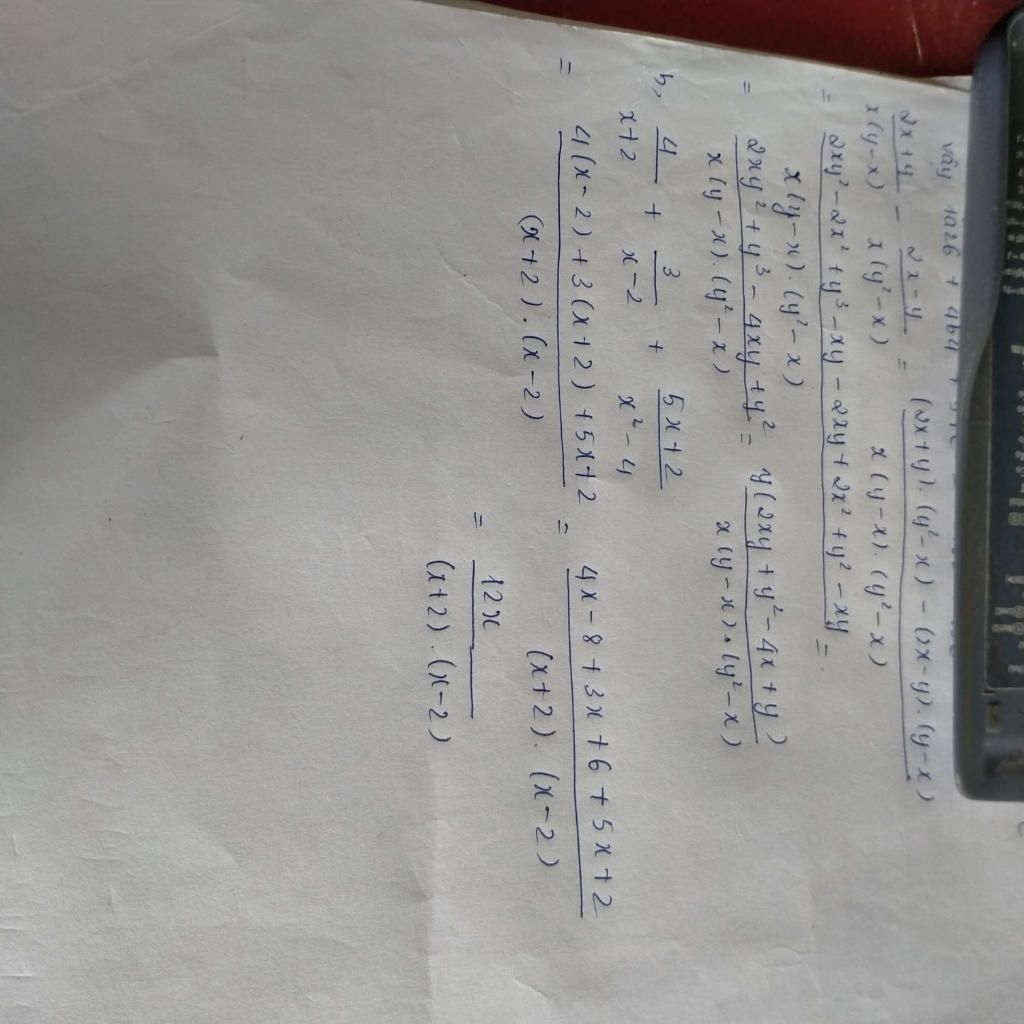 vậy 1026 + 464
2x+y/x(y-x) - 2x-y/x(y²-x) = (2x+y).(y²-x) - (2x-y).(y-x)/x(y-x).(y²-x)
= 2xy²-2x²+y³-xy-2xy+2x²+y²-xy/x(y-x).(y²-x) =
= 2xy²+y³-4xy+y²/x(y-x).(y²-x) = y(2xy+y²-4x+y)/x(y-x).(y²-x)
4/x+2 + 3/x-2 + 5x+2/x²-4
= 4(x-2)+3(x+2)+5x+2/(x+2).(x-2) = 4x-8+3x+6+5x+2/(x+2).(x-2)
= 12x/(x+2).(x-2)